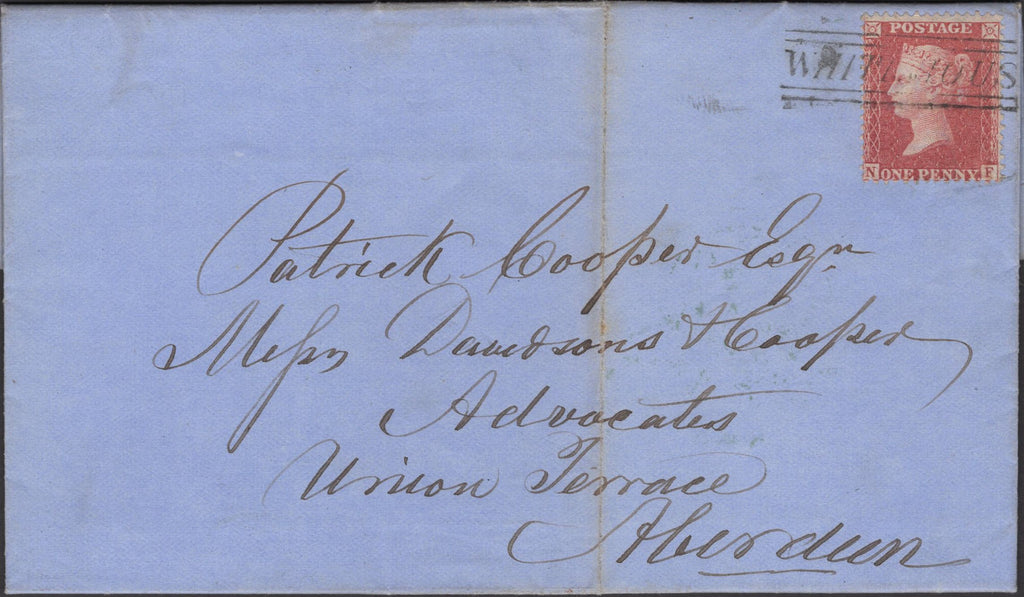 POSTAGE
WHITEHOUS
N ONE PENNY F
Patrick Cooper Esqr
Messrs Davidsons & Cooper
Advocates
Union Terrace
Aberdeen